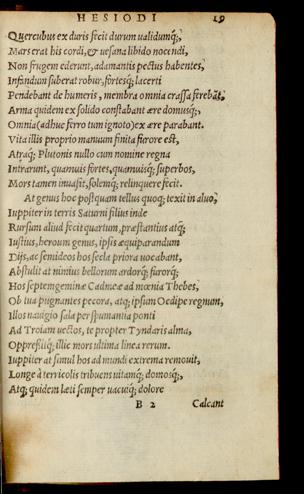 HESIODI 19
Quercubus ex duris fecit durum ualidumq;,
Mars erat his cordi, & uesana libido nocendi,
Non frugem ederunt, adamantis pectus habentes,
Infandum suberat robur, fortesq; lacerti
Pendebant de humeris, membra omnia crassa ferebāt,
Arma quidem ex solido constabant ære domusq;,
Omnia (adhuc ferro tum ignoto) ex ære parabant.
Vita illis proprio manuum finita furore est,
Atraq; Plutonis nullo cum nomine regna
Intrarunt, quamuis fortes, quamuisq; superbos,
Mors tamen inuasit, solemq; relinquere fecit.
At genus hoc postquam tellus quoq; texit in aluo,
Iuppiter in terris Saturni filius inde
Rursum aliud fecit quartum, præstantius atq;
Iustius, heroum genus, ipsis æquiparandum
Dijs, ac semideos hos secla priora uocabant,
Abstulit at nimius bellorum ardorq; furorq;
Hos septemgeminæ Cadmeæ ad mœnia Thebes,
Ob tua pugnantes pecora, atq; ipsum Oedipe regnum,
Illos nauigio sala per spumantia ponti
Ad Troiam uectos, te propter Tyndaris alma,
Oppressitq; illic mors ultima linea rerum.
Iuppiter at simul hos ad mundi extrema remouit,
Longe à terricolis tribuens uitamq; domosq;,
Atq; quidem læti semper uacuiq; dolore
B 2 Calcant